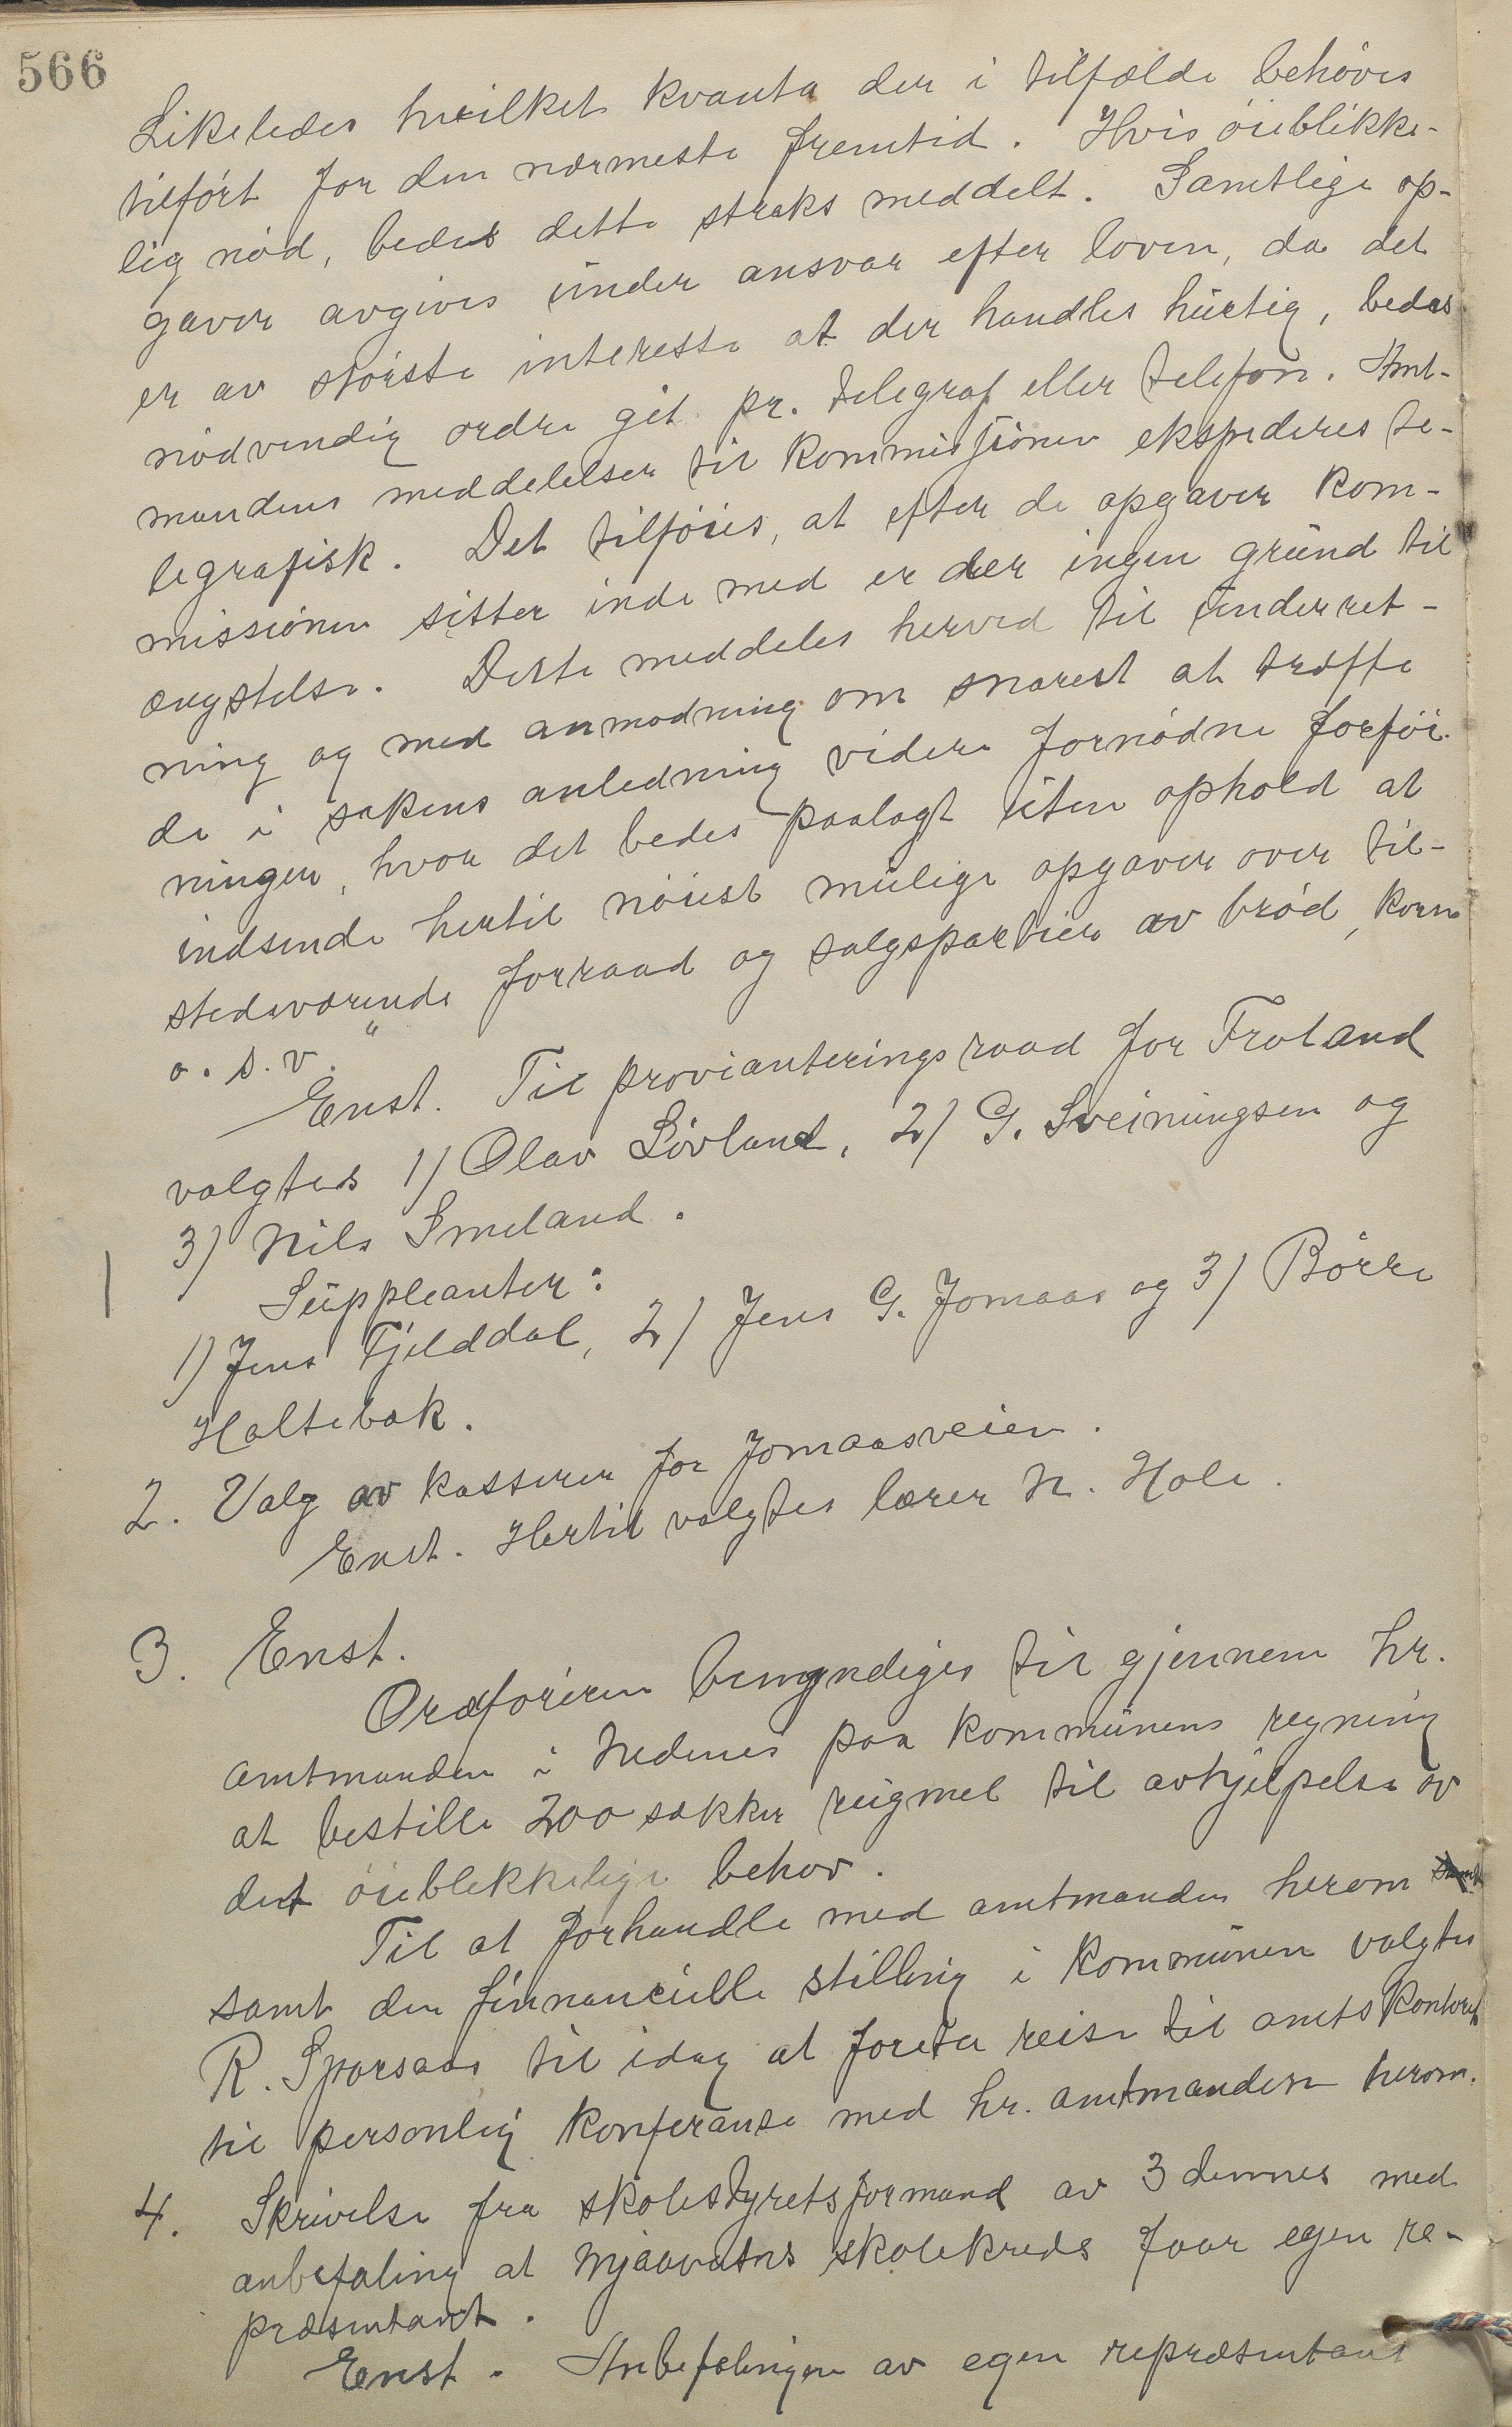 566
Likeledes hvilket kvanta der i tilfælde behöves
tilfört for den nærmeste fremtid. Hvis öieblikke-
lig nöd, bedes dette straks meddelt. Samtlige op-
gaver avgives under ansvar efter loven, da det
er av störste interesse at der handles hurtig, bedes
nödvendig ordre git pr. telegraf eller telefon. Amt-
mandens meddelelser til kommissionen ekspederes te-
legrafisk. Det tilföies, at efter de opgaver kom-
missionen sitter inde med er der ingen grund til
ængstelse. Dette meddeles herved til underret-
ning og med anmodning om snarest at træffe
de i sakens anledning videre fornödne forföi-
ninger, hvor det bedes paalagt uten ophold at
indsende hertil nöiest mulige opgaver over til-
stedeværende forraad og salgspartier av bröd, korn
o.s.v."
Enst. Til provianteringsraad for Froland
valgtes 1) Olav Lövland, 2) G. Sveinungsen og
3) Nils Smeland.
Suppleanter:
1) Jens Fjelddal, 2) Jens G. Jomaas og 3) Börre
Haltebak.
2. Valg av kasserer for Jomaasveien.
Enst. Hertil valgtes lærer N. Hole.
3. Enst.
Ordföreren bemyndiges til gjennem hr.
amtmanden i Nedenes paa kommunens regning
at bestille 200 sækker rugmel til avhjelpelse av
det öieblekkelige behov.
Til at forhandle med amtmanden herom samt
samt den finnancielle stilling i kommunen valgtes
R. Sparsaas til idag at foreta reise til amtskontoret
til personlig konferanse med hr. amtmanden herom.
4. Skrivelse fra skolestyretsformand av 3 dennes med
anbefaling at Mjaavatns skolekreds faar egen re-
præsentant.
Enst. Anbefalingen av egen repræsentant